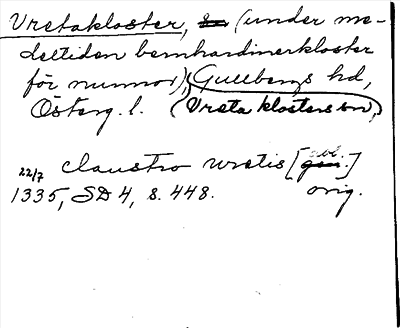 Vretakloster, (under me-
deltiden bernhardinerkloster
för nunnor), Gullbergs hd,
Österg. l. (Vreta klosters sn,)
22/7 claustro wretis [abl.]
1335, SD 4, s. 448. orig.